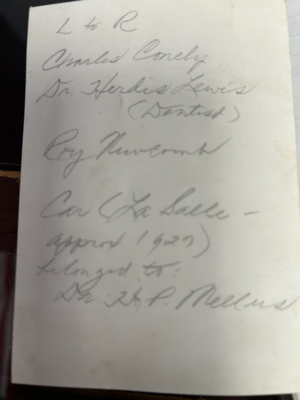 L to R
Charles Corely
Dr. Herdis Lewis
(Dentist)
Roy Newcomb
Car (La Salle -
approx 1927)
belonged to:
Dr. H. P. Mellus